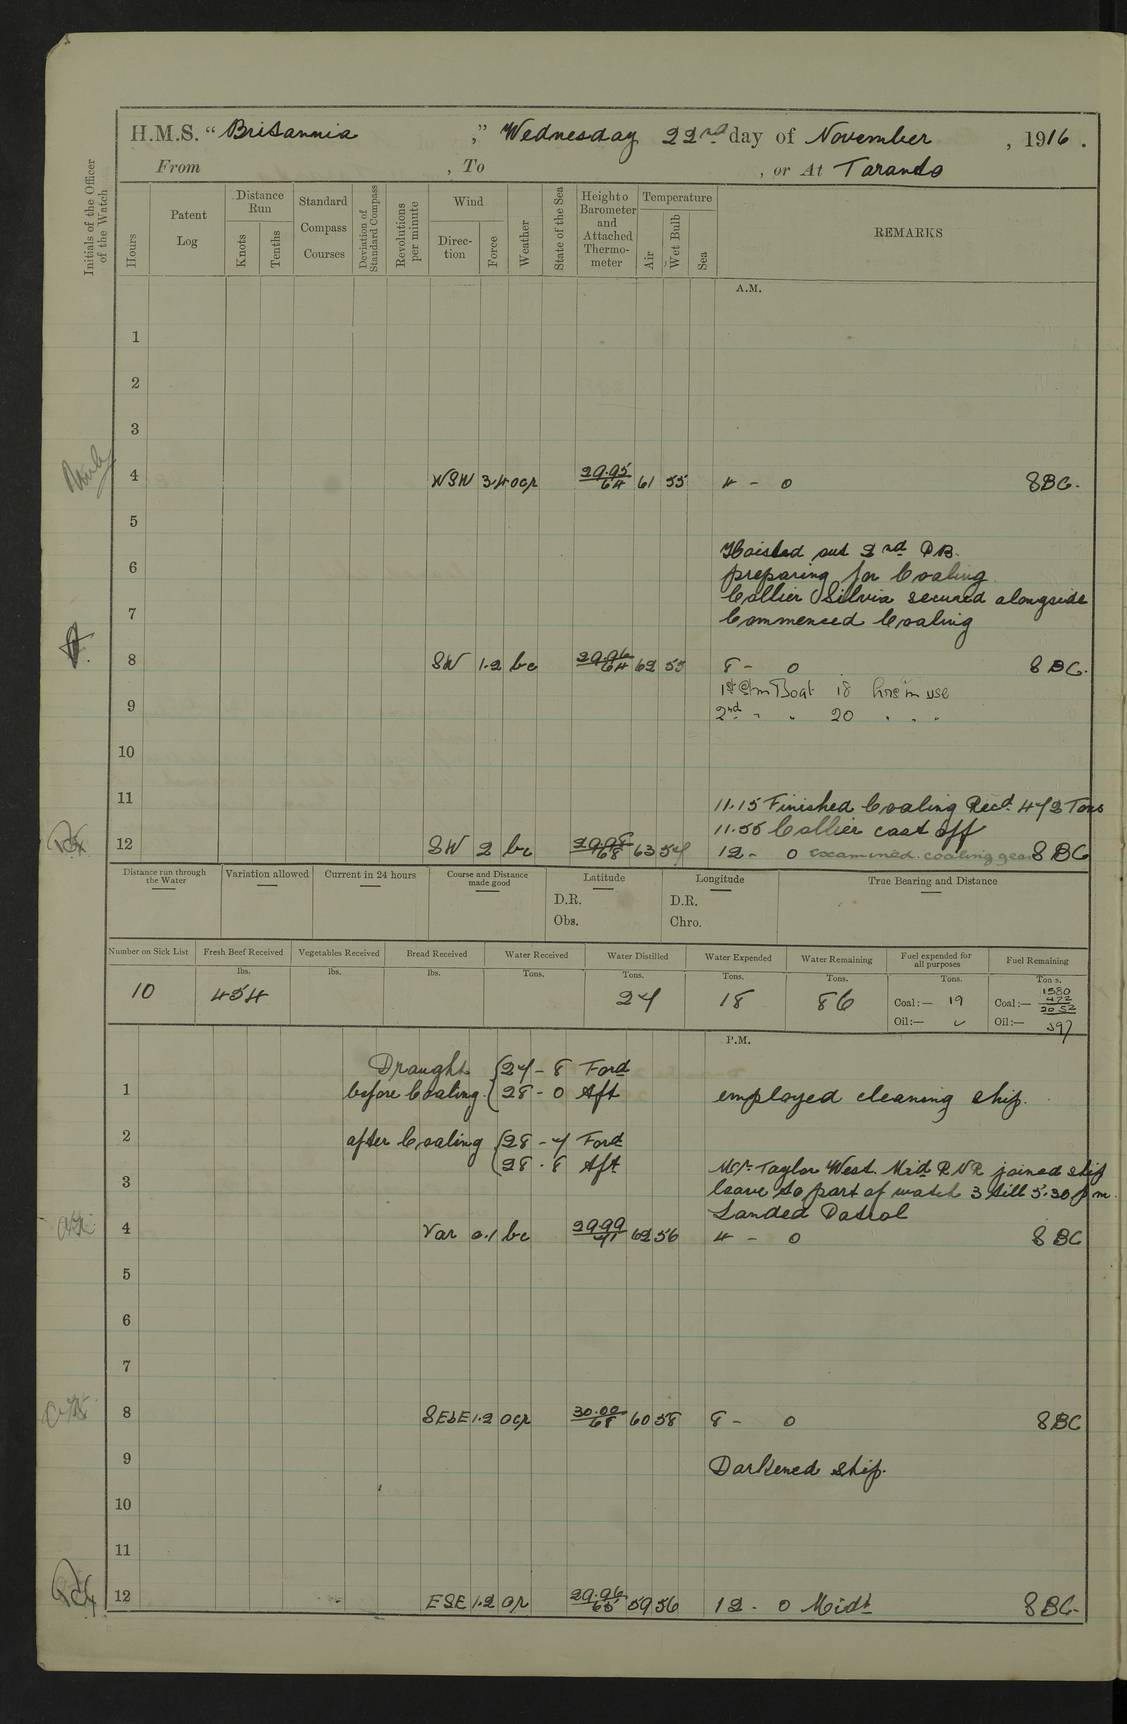 H.M.S. "Britannia," Wednesday 22nd day of November, 1916.
From , To , or At Taranto
Initials of the Officer of the Watch
Hours
Patent Log
Distance Run
Knots
Tenths
Standard Compass Courses
Deviation of Standard Compass
Revolutions per minute
Wind
Direction
Force
Weather
State of the Sea
Height o Barometer and Attached Thermometer
Temperature
Air
Wet Bulb
Sea
REMARKS
A.M.
1
2
3
4 WSW 3.4 ocp 29.95 64 61 55 4 - 0 8BC.
5
Hoisted out 2nd PB.
6 preparing for Coaling
Collier Silvia secured alongside
7 Commenced Coaling
8 SW 1.2 bc 29.96 64 62 55 8 - 0 8BC.
1st Stm Boat 18 hrs in use
9 2nd " " 20 " " "
10
11 11.15 Finished Coaling Recd 472 Tons
11.55 Collier cast off
12 SW 2 bc 29.98 68 63 57 12 - 0 examined coaling gear 8BC
Distance run through the Water
Variation allowed
Current in 24 hours
Course and Distance made good
Latitude
D.R.
Obs.
Longitude
D.R.
Chro.
True Bearing and Distance
Number on Sick List
Fresh Beef Received
Vegetables Received
Bread Received
Water Received
Water Distilled
Water Expended
Water Remaining
Fuel expended for all purposes
Fuel Remaining
lbs. lbs. lbs. Tons. Tons. Tons. Tons. Tons. Tons.
10 454 27 18 86
Coal:— 19
Oil:— ✓
Coal:— 1580 472 2052
Oil:— 397
P.M.
Draught {27 - 8 Ford
1 before Coaling {28 - 0 Aft employed cleaning ship.
2 after Coaling {28 - 7 Ford
{28 . 8 Aft Mr Taylor West. Mid RNR joined ship
3 leave to part of watch 3 till 5.30 pm.
Landed Patrol
4 Var 0.1 bc 29.99 71 62 56 4 - 0 8BC
5
6
7
8 SEbE 1.2 ocp 30.00 68 60 58 8 - 0 8BC
9 Darkened ship.
10
11
12 ESE 1.2 op 29.96 65 59 56 12 - 0 Midt 8BC.